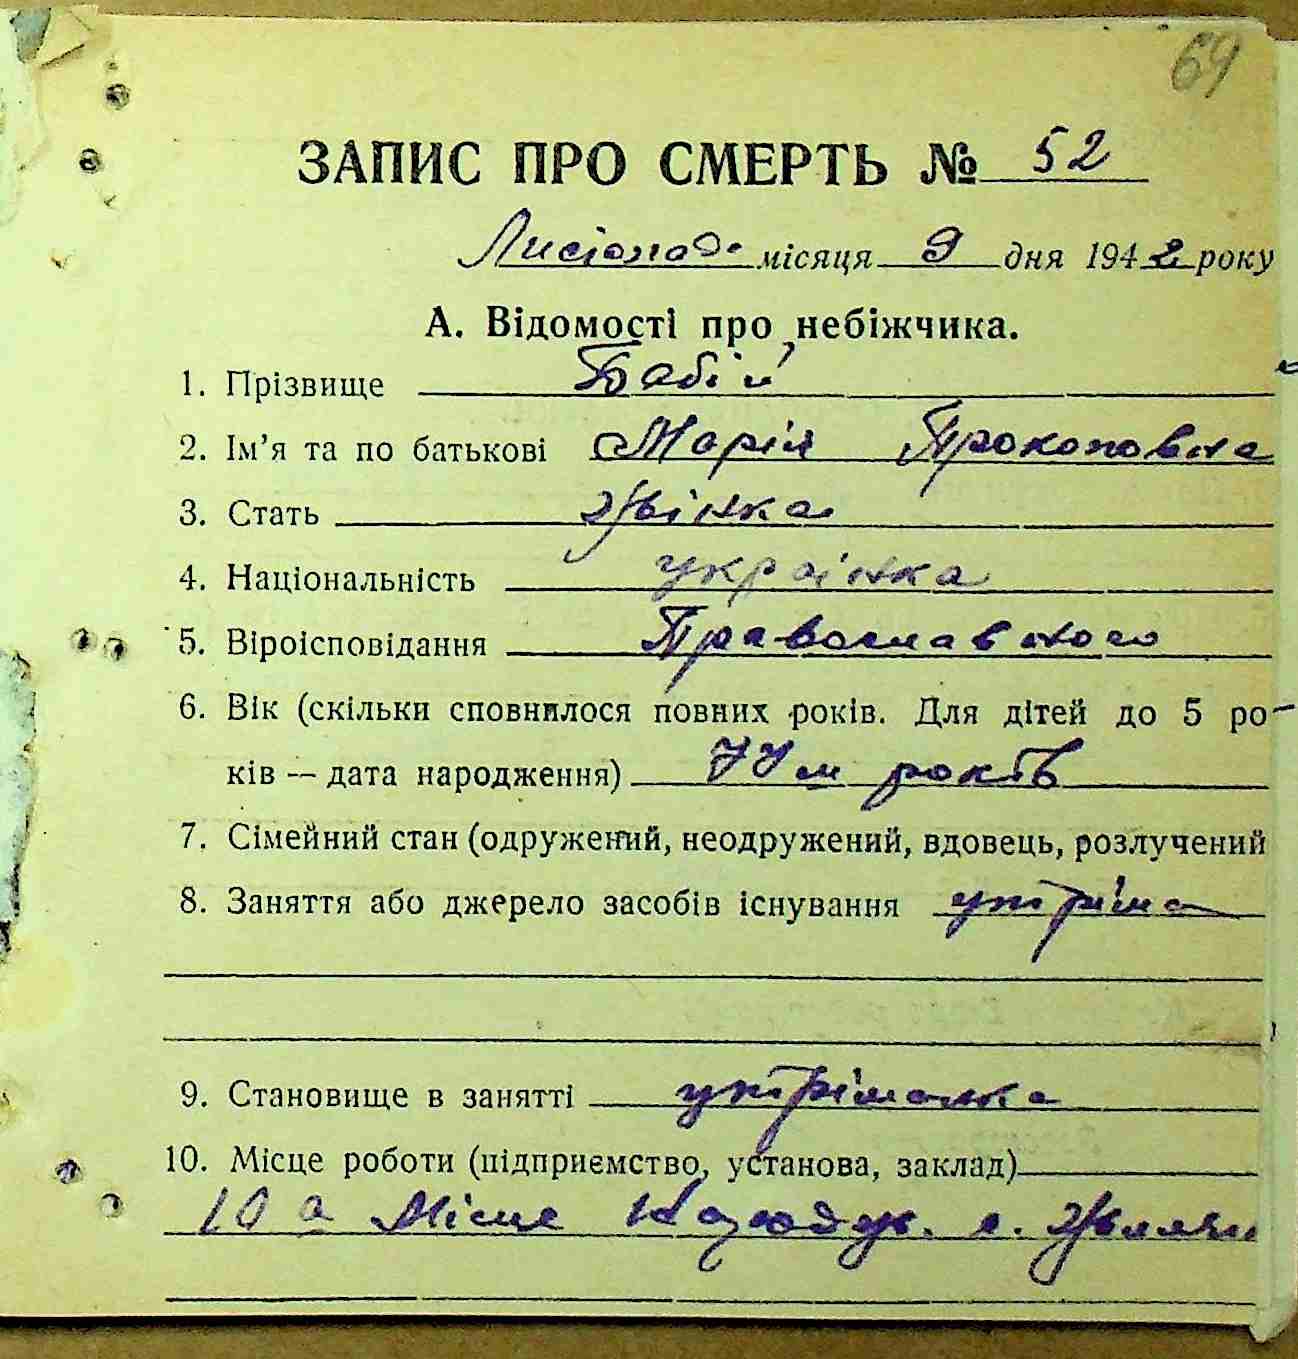 69
ЗАПИС ПРО СМЕРТЬ № 52
Листопада місяця 9 дня 1942 року
А. Відомості про небіжчика.
1. Прізвище Бабій
2. Ім’я та по батькові Марія Прокоповна
3. Стать жінка
4. Національність українка
5. Віроісповідання Православного
6. Вік (скільки сповнилося повних років. Для дітей до 5 ро-
ків — дата народження) років
7. Сімейний стан (одружений, неодружений, вдовець, розлучений
8. Заняття або джерело засобів існування утріма
9. Становище в занятті утріманка
10. Місце роботи (підприємство, установа, заклад)
10 а Місце с.